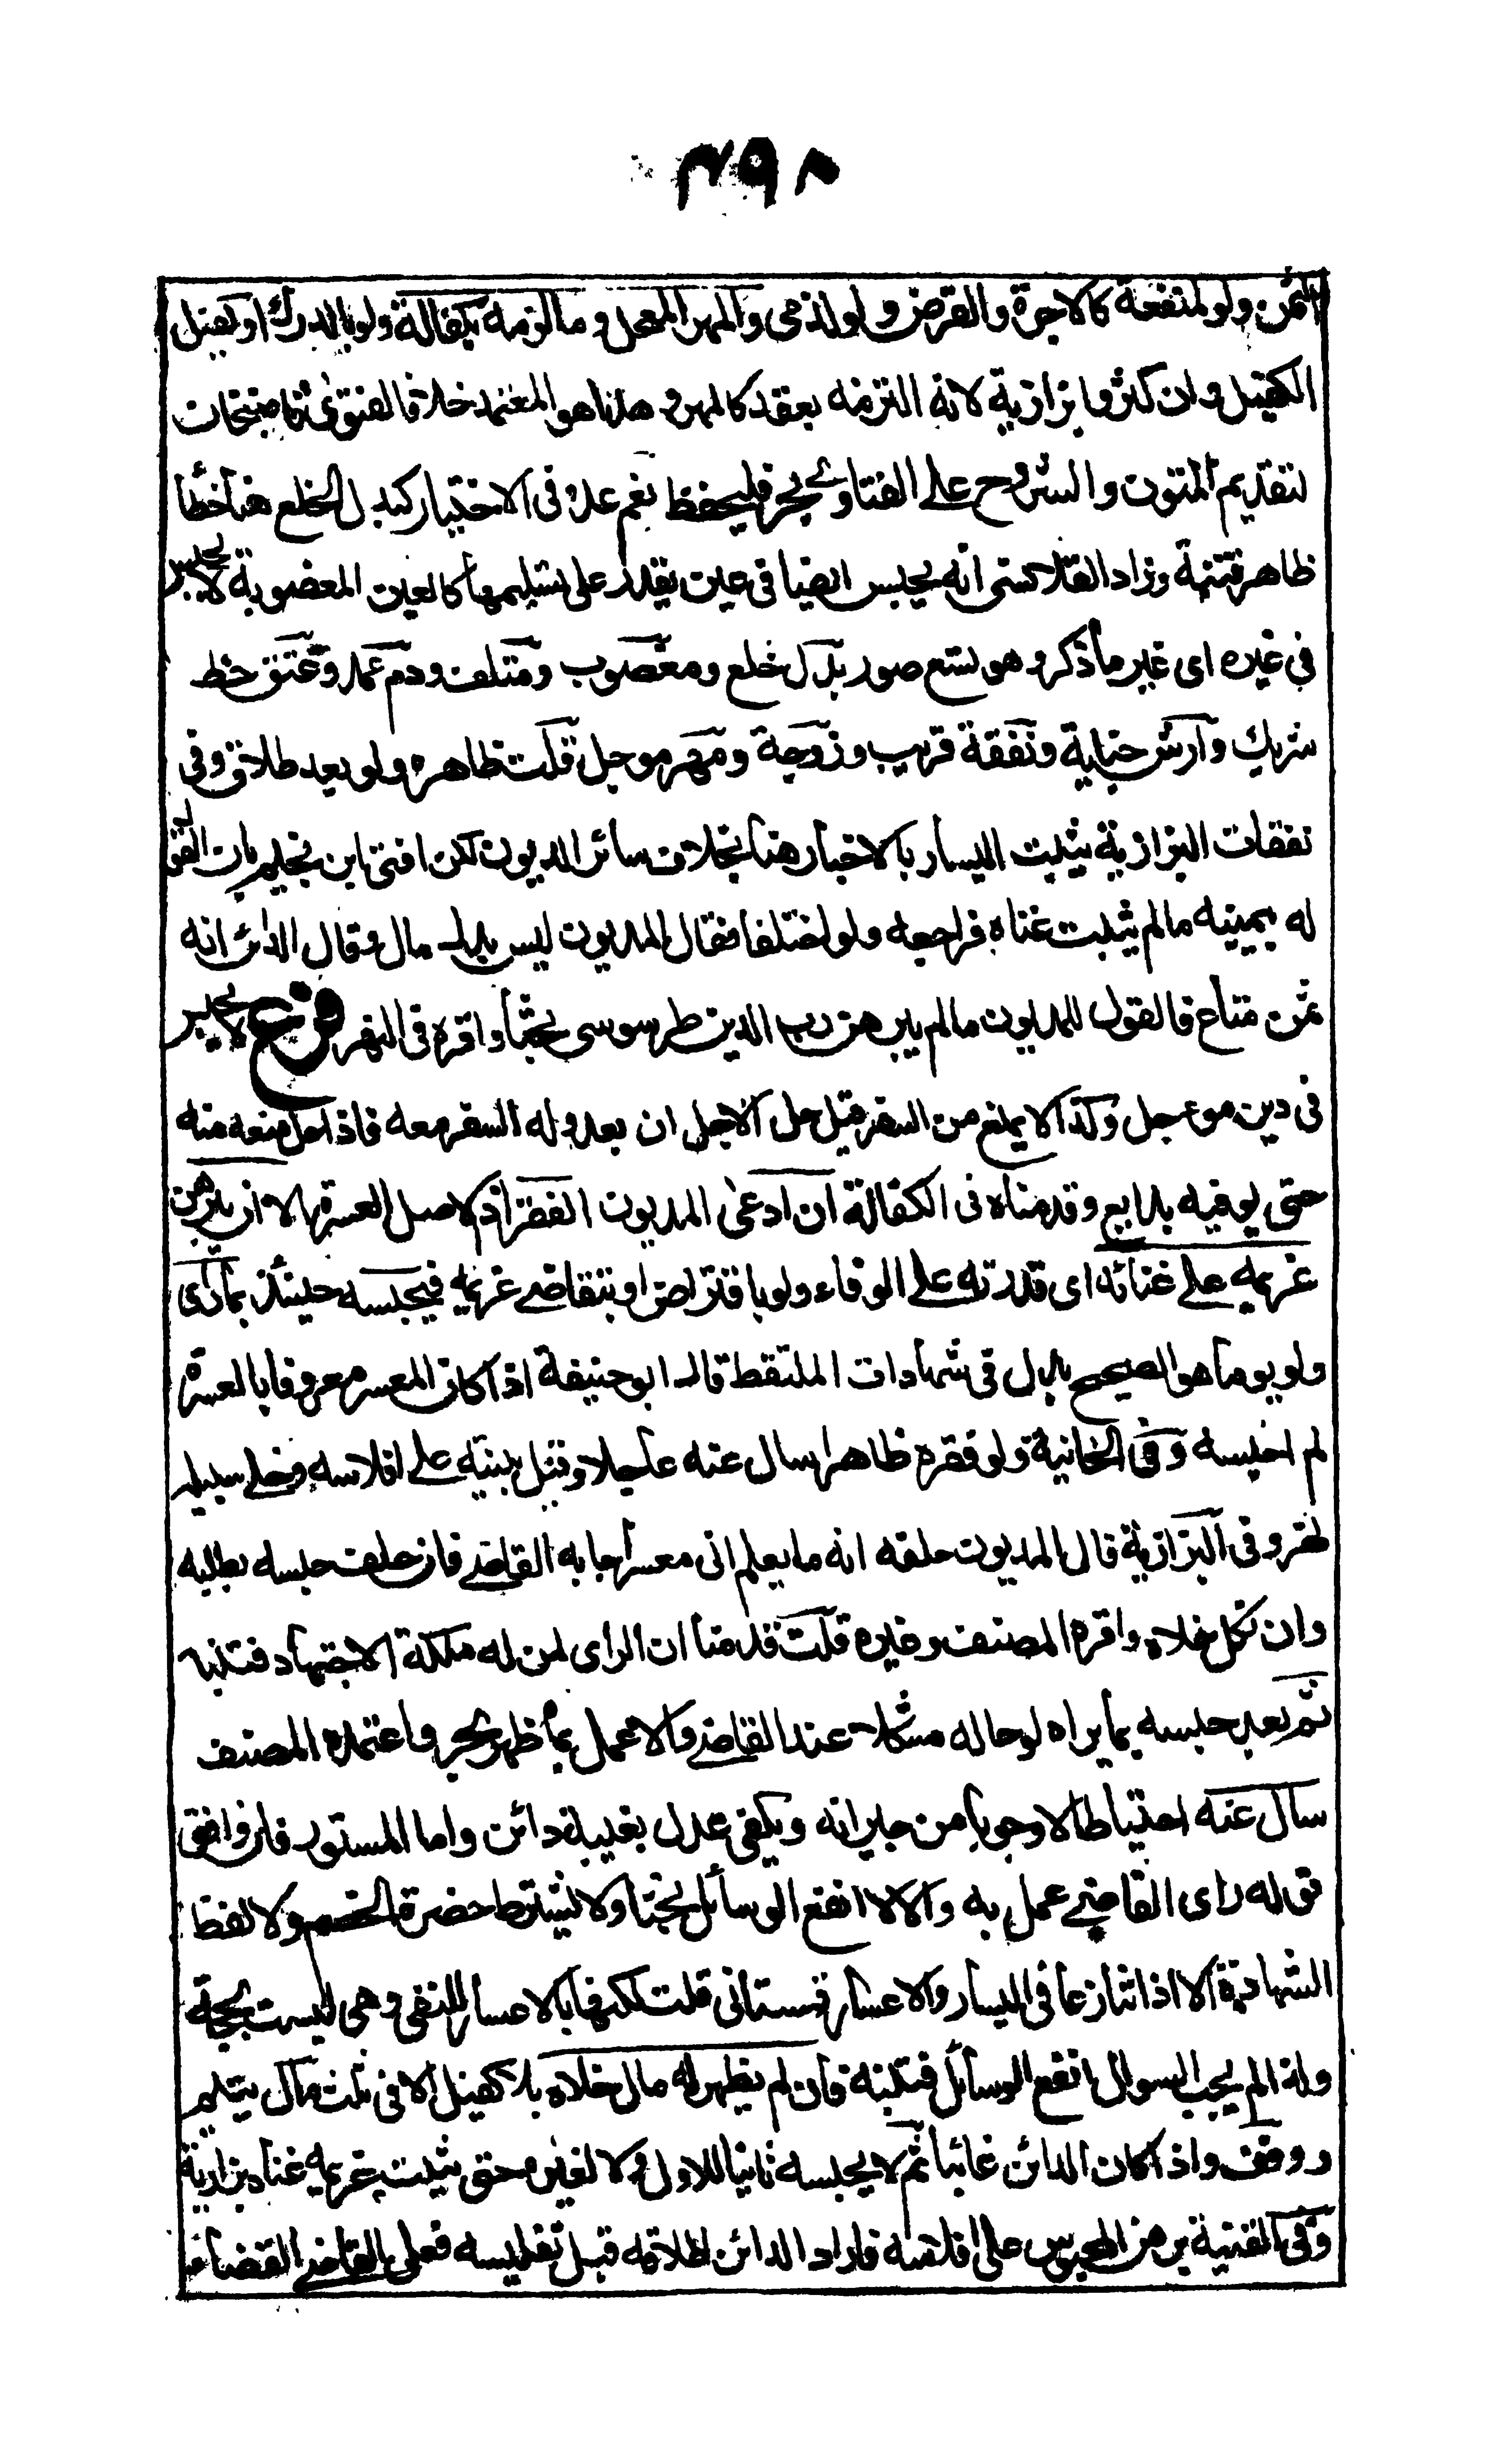 ٣٩٨
الثمن ولو لمنفعة كالاجرة والقرض ولو لذمى والمهر المعجل وما لزمه بكفالة ولو بالدرك او كفيل
الكفيل وان كثروا بزازية لانه التزمه بعقد كالمهر و هذا هو المعتمد خلافا لفتوى قاضيخان
لتقديم المتون والشروح على الفتاوى بحر فليحفظ نعم عده فى الاختيار كبدل الخلع هنا خطأ
ظاهر فتنبه وزاد القلانسى انه يحبس ايضا فى عين يقدر على تسليمها كالعين المغصوبة لا يحبس
فى غيره اى غير ما ذكر و هو تسع صور بدل خلع ومغصوب ومتلف ودم عمد وعتق حظ
شريك وارش جناية ونفقة قريب وزوجة ومهر موجل قلت ظاهره ولو بعد طلاق وفى
نفقات البزازية يثبت اليسار بالاخبار هنا بخلاف سائر الديون لكن افتى ابن نجيم بان القول
له بيمينه مالم يثبت غناه فراجعه ولو اختلفا فقال المديون ليس بدل مال وقال الدائن انه
ثمن متاع فالقول للمديون مالم يبرهن رب الدين طرسوسى بحثا واقره فى النهر فرع لا يحبس
فى دين موءجل وكذا لا يمنع من السفر قبل حل الاجل ان بعد وله السفر معه فاذا حل منعه منه
حتى يوفيه بدايع وقدمناه فى الكفالة ان ادعى المديون الفقر اذ الاصل العسرة الا ان يبرهن
غريمه على غنائه اى قدرته على الوفاء ولو باقتراض او بتقاضى غريمه فيحبسه حينئذ بما رأى
ولو يوما هو الصحيح بل فى شهادات الملتقط قال ابو حنيفة اذا كان المعسر معروفا بالعسرة
لم احبسه وفى الخانية ولو فقره ظاهرا سال عنه عاجلا وقبل بينته على افلاسه وخلى سبيله
نهر وفى البزازية قال المديون حلفه انه ما يعلم انى معسر اجابه القاضى فان حلف حبسه بطلبه
وان نكل خلاه واقره المصنف وغيره قلت قدمنا ان الراى لمن له ملكة الاجتهاد فتنبه
ثم بعد حبسه بما يراه لو حاله مشكلا عند القاضى والا عمل بما ظهر بحر واعتمده المصنف
سال عنه احتياطا لا وجوبا من جيرانه ويكفى عدل بغيبة دائن واما المستور فان وافق
قوله راى القاضى عمل به والا لا انفع الوسائل بحثا ولا يشترط حضرة الخصم ولا لفظ
الشهادة الا اذا تنازعا فى اليسار والاعسار قهستانى قلت لكنها بالاعسار للنفى وهى ليست بحجة
ولذا لم يجب السوال انفع الوسائل فتنبه فان لم يظهر له مال خلاه بلا كفيل الا فى ثلث مال يتيم
ووقف واذا كان الدائن غائبا ثم لا يحبسه ثانيا للاول ولا لغيره حتى يثبت غريمه غناه بزازية
وفى القنية برهن المحبوس على افلاسه فاراد الدائن اطلاقه قبل تفليسه فعلى القاضى القضاء